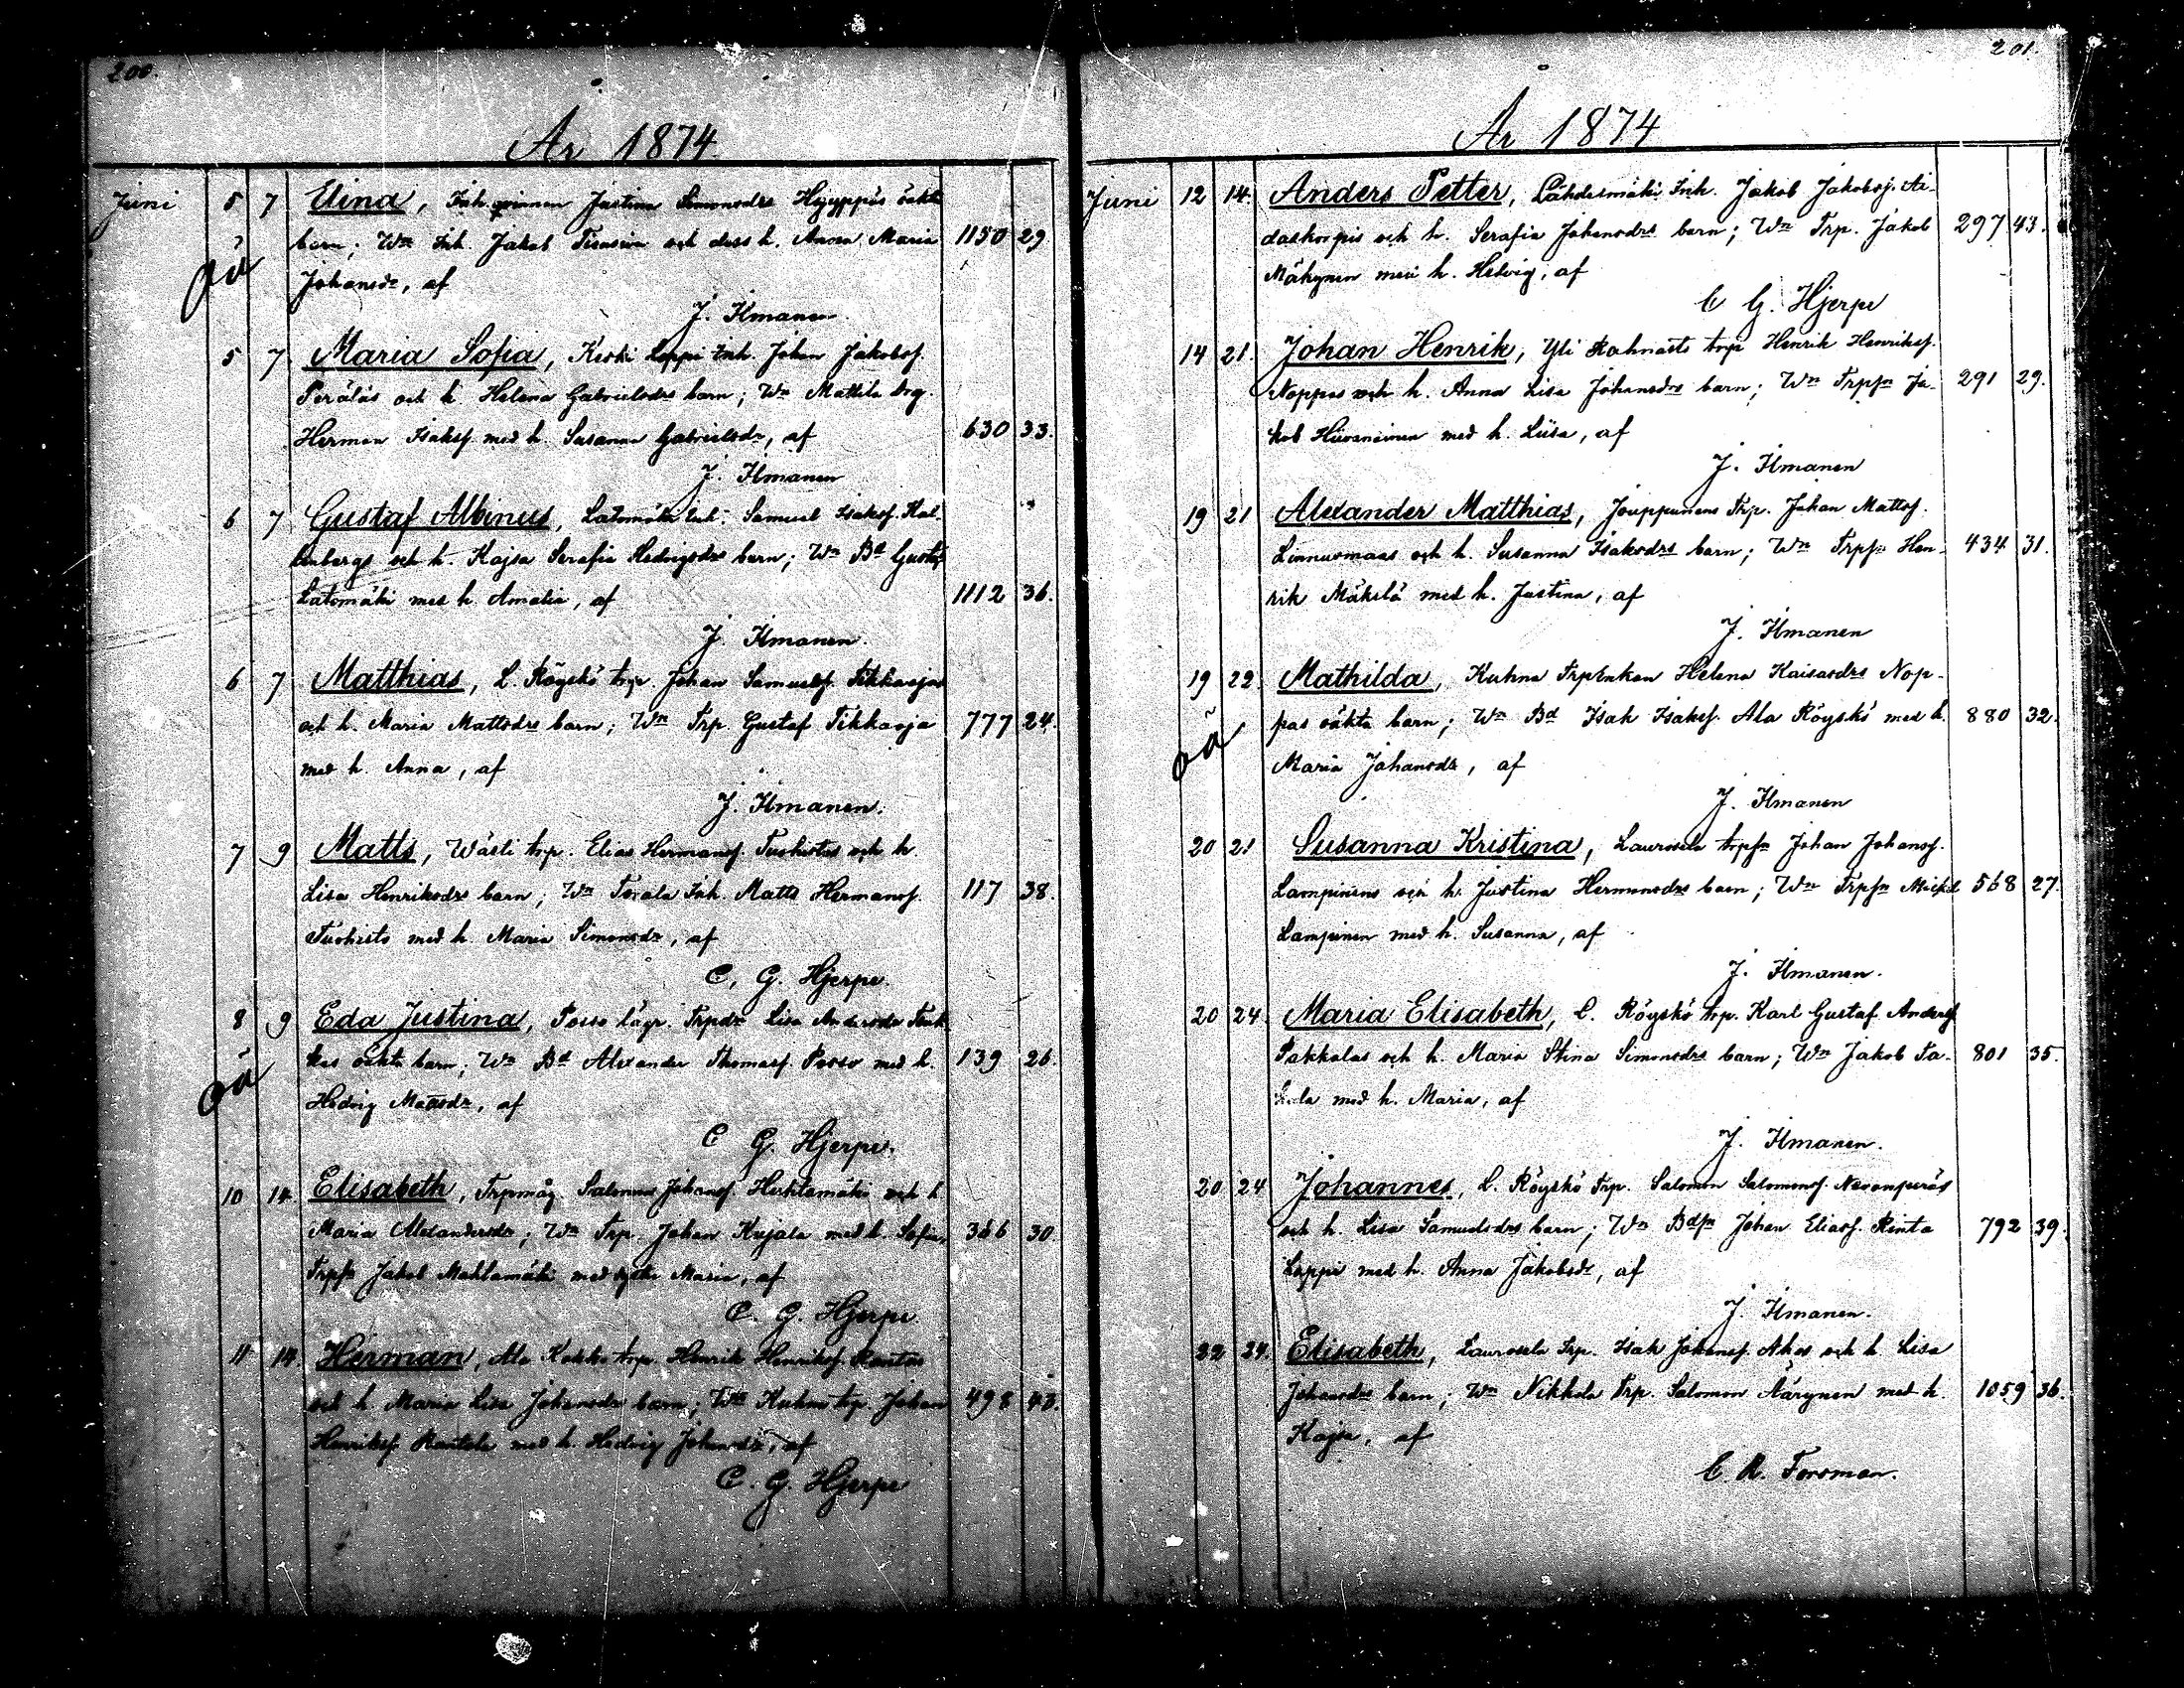 200.
År 1874
Juni 5 7 Elina, Inh. qvinnan Justina Simonsdrs oäkta
barn; Wn Inh. Jakob och dess h. Anna Maria 1150 29
oä
Johansdr, af
J. Ilmanen
5 7 Maria Sofia, Keski Lappi Inh. Johan Jakobsf.
Perälas och h. Helena Gabrielsdrs barn; Wn Mattila drg.
Herman Isaksf. med h. Susanna Gabrielsdr, af 630 33.
J. Ilmanen
6 7 Gustaf Albinus, Latomäki Inh. Samuel Isaksf. Kal-
lenbergs och h. Kajsa Serafia Hedvigsdrs barn; Wn Bd Gustaf
Latomäki med h. Amalia, af 1112 36.
J. Ilmanen.
6 7 Matthias, L. Röyskö trp. Johan Samuelsf. Tikkaojas
och h. Maria Mattsdrs barn; Wn Trp. Gustaf Tikkaoja 777 24.
med h. Anna, af
J. Ilmanen.
7 9 Matts, Wästi trp. Elias Hermansf. Tuohistos och h.
Lisa Henriksdrs barn; Wn Torala Inh. Matts Hermansf. 117 38.
Tuohisto med h. Maria Simonsdr, af
C. G. Hjerpe.
8 9 Eda Justina, Posso lägr. Trpdr Lisa Andersdr
kas oäkta barn; Wn Bd Alexander Thomasf. Posso med h. 139 26.
oä
Hedvig Mattsdr, af
C G. Hjerpe.
10 14 Elisabeth, Trpmåg. Salomon Johansf. Huhtamäki och h
Maria Alexandersdr; Wn Trp. Johan Kujala med h. Sofia, 366 30
Trpfn Jakob Mahlamäki med syster Maria, af
C. G. Hjerpe
11 14 Herman, Ala Kokko trp. Henrik Henriksf. Rantas
och h. Maria Lisa Johansdr barn; Wn Kuhna trp. Johan 498 43.
Henriksf. Rantala med h. Hedvig Johansdr, af
C. G. Hjerpe
201.
År 1874
Juni 12 14. Anders Petter, Lähdesmäki Inh. Jakob Jakobsf. Ai-
daskorpis och h. Serafia Johansdrs barn; Wn Trp. Jakob 297 43.
Mäkynen med h. Hedvig, af
C G. Hjerpe
14 21. Johan Henrik, Yli Rahnasto trp Henrik Henriksf.
Noppas och h. Anna Lisa Johansdrs barn; Wn Trpfn Ja- 291 29.
kob med h. Liisa, af
J. Ilmanen
19 21 Alexander Matthias, Jouppunens Trp. Johan Mattsf.
Linnusmaas och h. Susanna Isaksdrs barn; Wn Trpfn Hen- 434 31.
rik Mäkelä med h. Justina, af
J. Ilmanen
19 22 Mathilda, Kuhna Trpenkan Helena Kaisasdrs Nop-
pas oäkta barn; Wn Bd Isak Isaksf. Ala Röyskö med h. 880 32.
oä
Maria Johansdr, af
J. Ilmanen
20 21 Susanna Kristina, Laurosela trpfn Johan Johansf.
Lampinens och h. Justina Hermansdrs barn; Wn Trpfn Mickel 568 27.
Lampinen med h. Susanna, af
J. Ilmanen.
20 24. Maria Elisabeth, L. Röyskö trp. Karl Gustaf Andersf.
Pakkalas och h. Maria Stina Simonsdrs barn; Wn Jakob Pa- 801 35.
kala med h. Maria, af
J. Ilmanen.
20 24 Johannes, L. Röyskö Trp. Salomon Salomonsf. Nevanperäs
och h. Lisa Samuelsdrs barn; Wn Bdfn Johan Eliasf. Rinta 792 39.
Lappi med h. Anna Jakobsdr, af
J. Ilmanen.
22 24. Elisabeth, Laurosela Trp. Isak Johansf. Ahos och h. Lisa
Johansdrs barn; Wn Nikkola Trp. Salomon Äärynen med h. 1059 36.
Kajsa, af
C. R. Forsman.